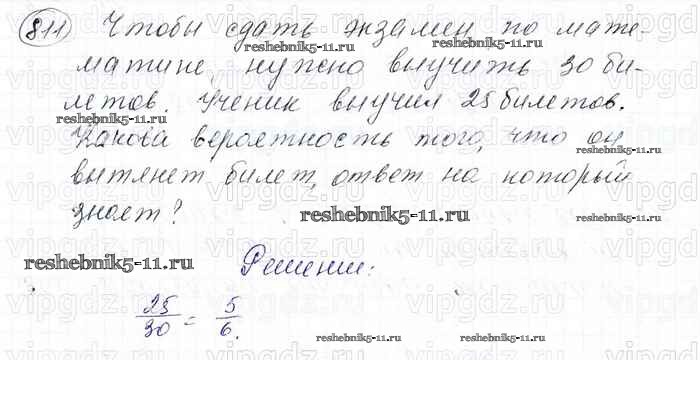 811 Чтобы сдать экзамен по мате-
матике, нужно выучить 30 би-
летов. Ученик выучил 25 билетов.
Какова вероятность того, что он
вытянет билет, ответ на который
знает?
Решение:
25/30 = 5/6.
reshebnik5-11.ru
reshebnik5-11.ru
reshebnik5-11.ru
reshebnik5-11.ru
reshebnik5-11.ru
reshebnik5-11.ru
reshebnik5-11.ru
vipgdz.ru